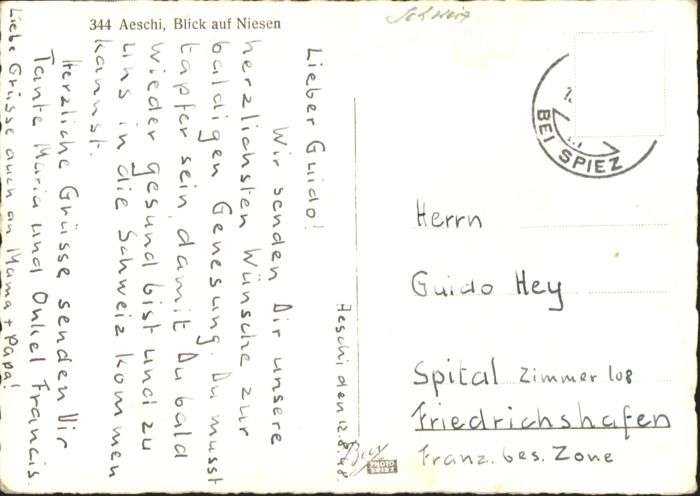 344 Aeschi, Blick auf Niesen
Schweiz
Aeschi den 12.8.48.
Lieber Guido!
Wir senden Dir unsere
herzlichsten Wünsche zur
baldigen Genesung. Du musst
tapfer sein, damit Du bald
wieder gesund bist und zu
uns in die Schweiz kommen
kannst.
Herzliche Grüsse senden Dir
Tante Maria und Onkel Francis.
Liebe Grüsse auch an Mama + Papa!
BEI SPIEZ
Herrn
Guido Hey
Spital Zimmer 108
Friedrichshafen
Franz. bes. Zone
PHOTO
SPIEZ